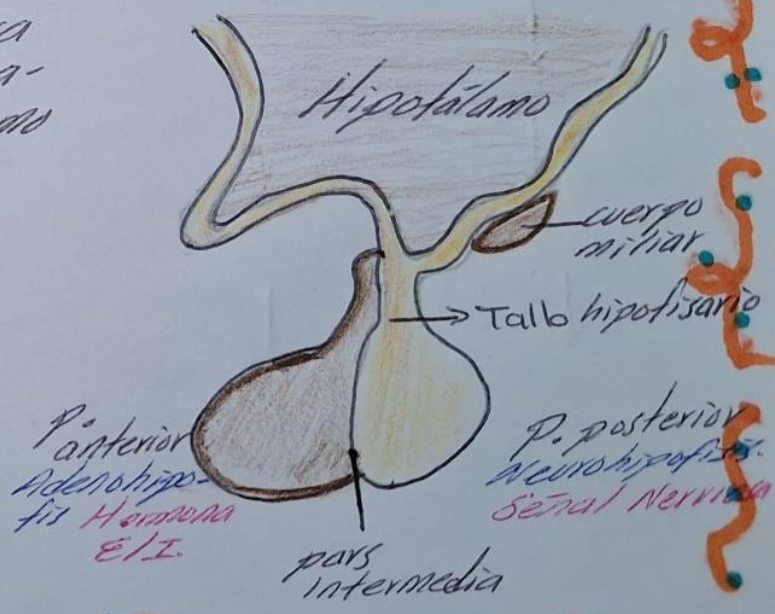 Hipotálamo
cuerpo
miliar
Tallo hipofisario
P. anterior
Adenohipo-
fis Hormona
E/I.
P. posterior
Neurohipofisis.
Señal Nerviosa
pars
intermedia